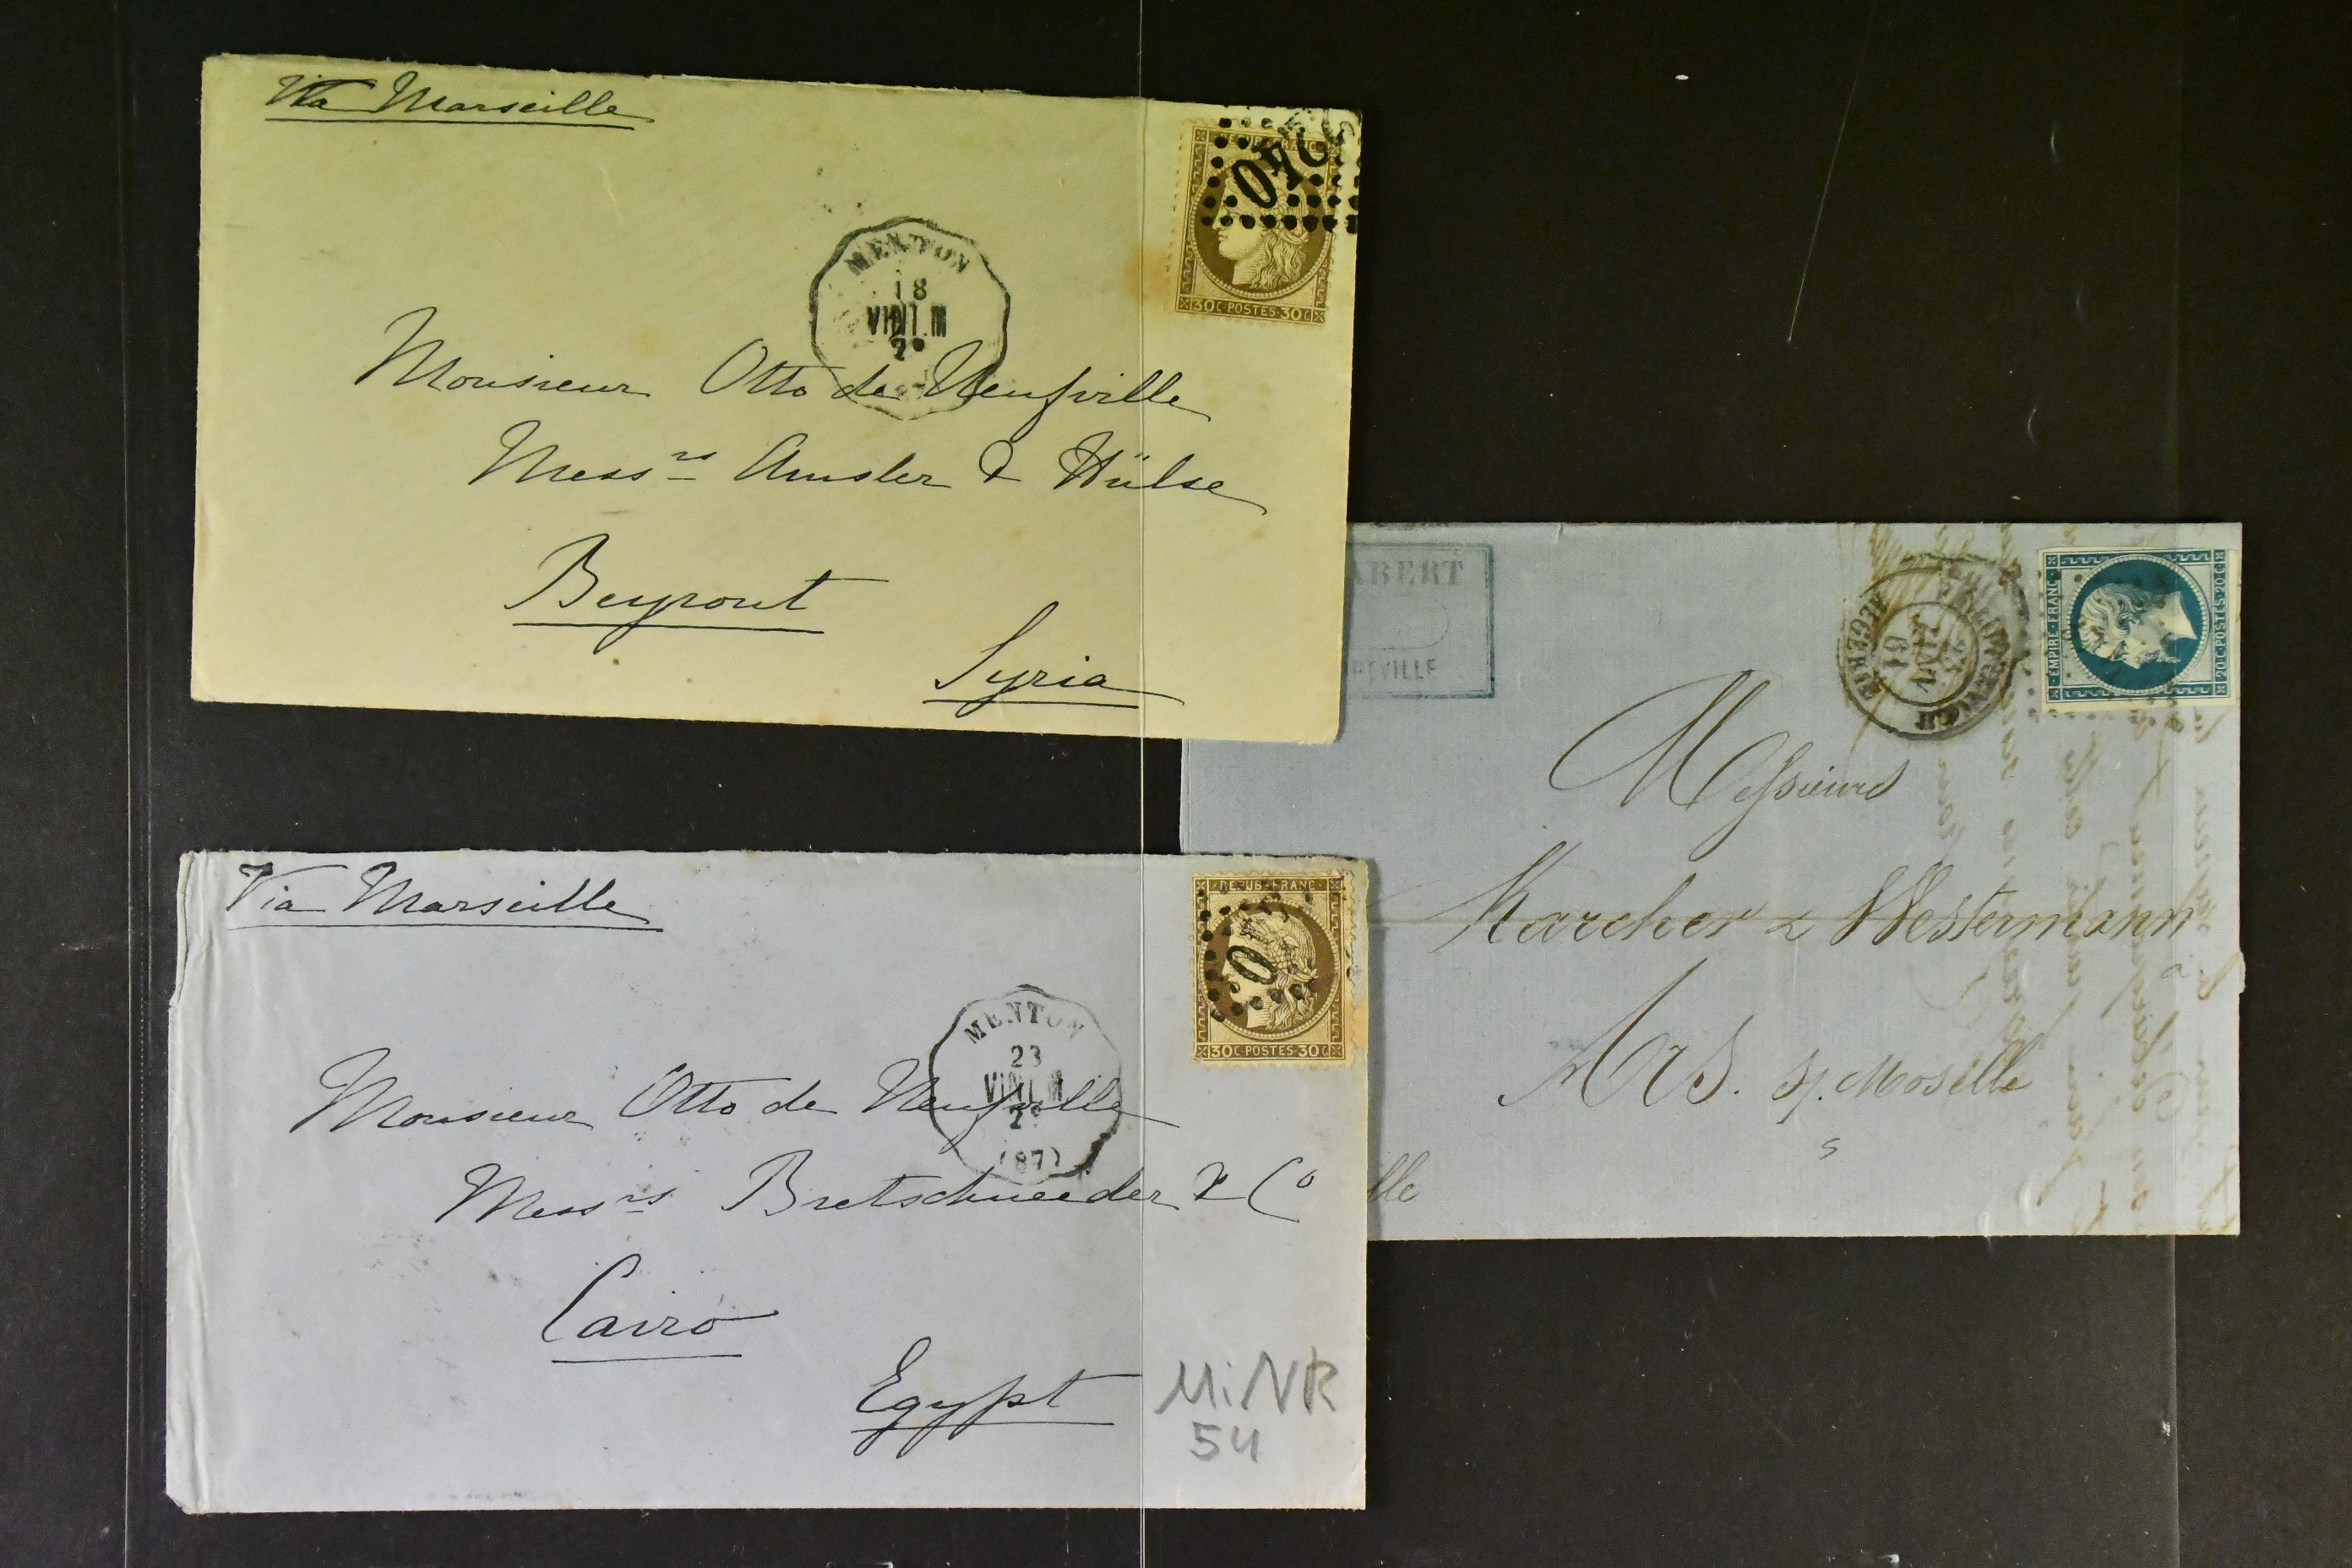 Via Marseille
REPUB FRANC
2240
30 C·POSTES·30 C
MENTON
18
VINT.M
2º
Monsieur Otto de Neufville
Messrs Amsler & Hülse
Beyrout
Syria
ABERT
VILLE
ALGERIE
JANV
61
EMPIRE FRANC
20 C·POSTES·20 C
Messieurs
Karcher & Westermann
à
Ars. s/. Moselle
lle
Via Marseille
REPUB FRANC
30 C·POSTES·30 C
MENTON
23
VINT.M
2º
(87)
Monsieur Otto de Neufville
Messrs Bretschneider & Co
Cairo
Egypt
MiNR
54